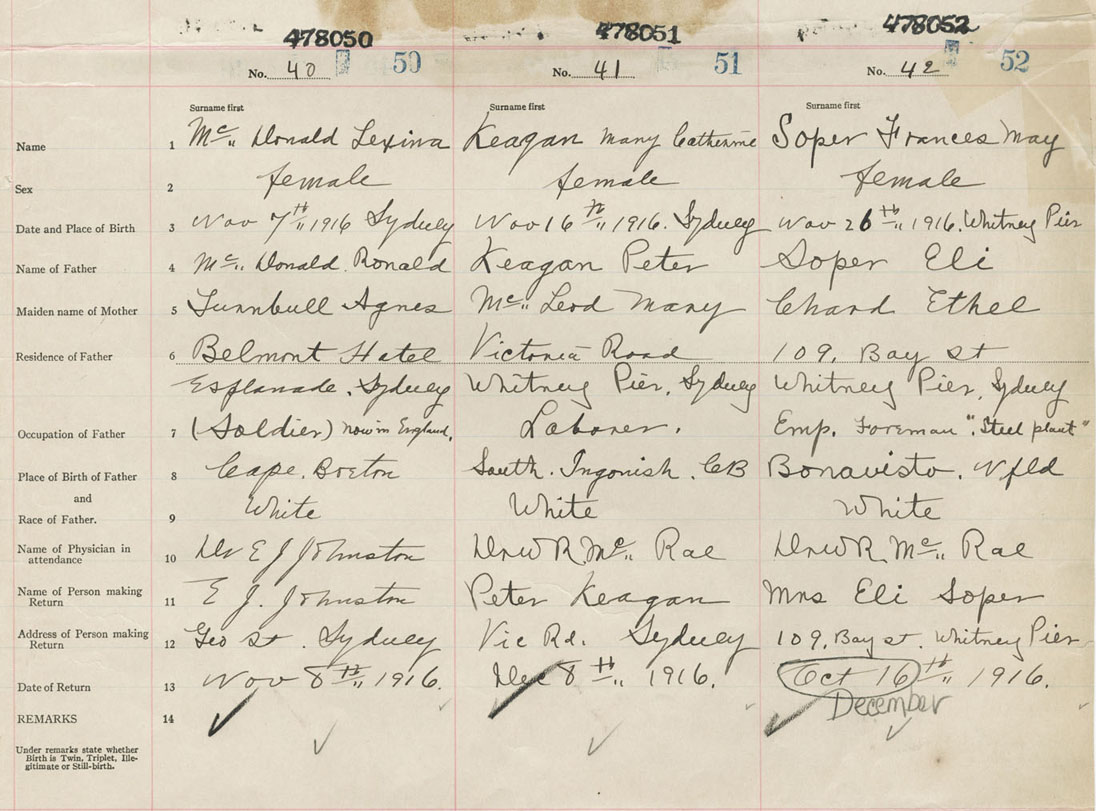 478050 478051 478052
No. 40 50 No. 41 51 No. 42 52
Surname first Surname first Surname first
Name 1 Mc" Donald Lexina Keagan Mary Catherine Soper Frances May
Sex 2 female female female
Date and Place of Birth 3 Nov 7th" 1916 Sydney Nov 16th" 1916. Sydney Nov 26th" 1916. Whitney Pier
Name of Father 4 Mc" Donald Ronald Keagan Peter Soper Eli
Maiden name of Mother 5 Turnbull Agnes Mc" Leod Mary Chard Ethel
Residence of Father 6 Belmont Hotel Victoria Road 109. Bay St
Esplanade. Sydney Whitney Pier, Sydney Whitney Pier, Sydney
Occupation of Father 7 (Soldier) now in England. Laborer. Emp. Foreman "Steel plant"
Place of Birth of Father 8 Cape. Breton South. Ingonish. CB Bonavisto. Nfld
and
Race of Father. 9 White White White
Name of Physician in attendance 10 Dr E J Johnston Dr W R Mc" Rae Dr W R Mc" Rae
Name of Person making Return 11 E J. Johnston Peter Keagan Mrs Eli Soper
Address of Person making Return 12 Geo St. Sydney Vic Rd. Sydney 109. Bay st. Whitney Pier
Date of Return 13 Nov 8th" 1916. Dec 8th" 1916. Oct 16th" 1916.
December
REMARKS 14
Under remarks state whether
Birth is Twin, Triplet, Ille-
gitimate or Still-birth.